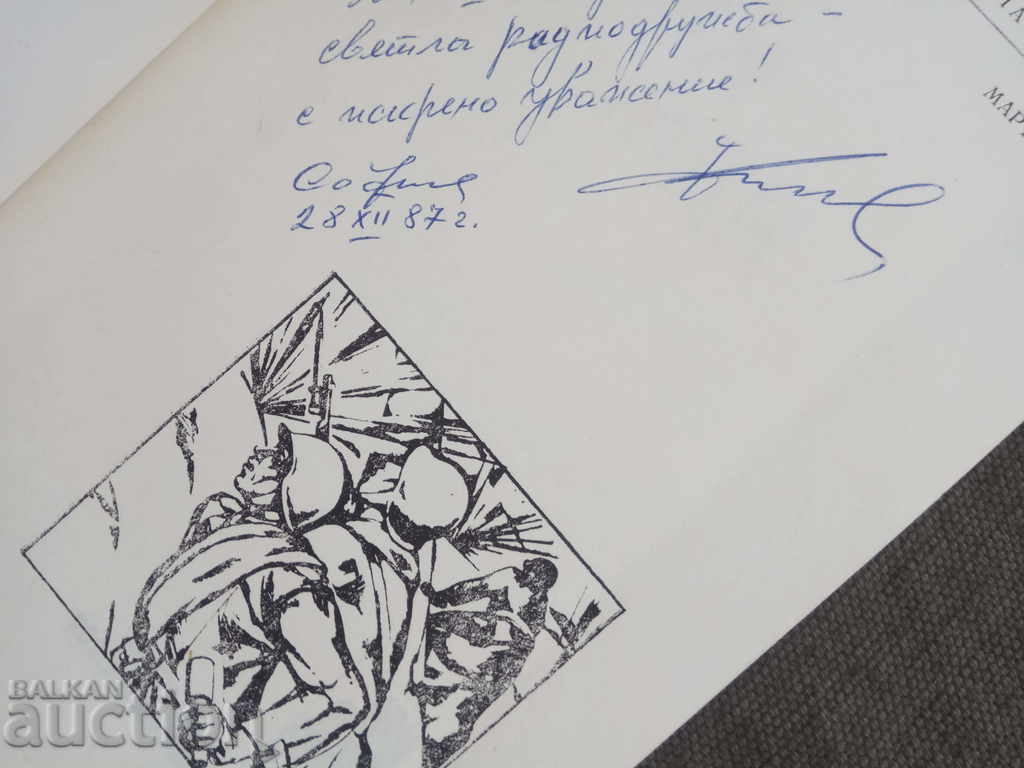 светла радиодружба -
с искрено уважение!
София
28 XII 87 г.
МАР
BALKAN
auction